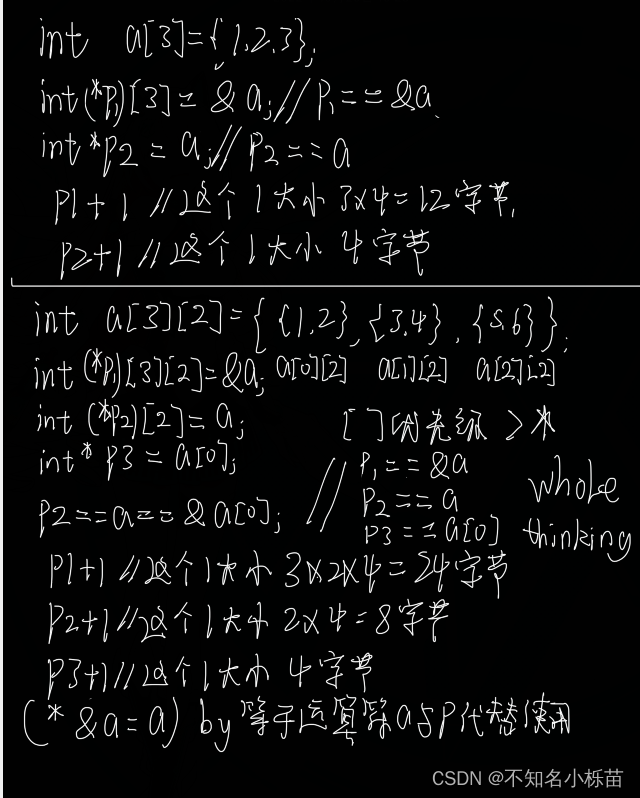 int a[3]={1,2,3};
int(*p1)[3]=&a;//p1==&a
int*p2=a;//p2==a
p1+1 //这个1大小3x4=12字节,
p2+1 //这个1大小4字节
int a[3][2]={{1,2},{3,4},{5,6}};
int(*p1)[3][2]=&a; a[0][2] a[1][2] a[2][2]
int(*p2)[2]=a; []优先级>*
int*p3=a[0];
p2==a==&a[0]; // p1==&a
p2==a
p3==a[0]
whole
thinking
p1+1 //这个1大小3x2x4=24字节
p2+1 //这个1大小2x4=8字节
p3+1 //这个1大小4字节
(*&a=a) by等于运算符a与p代替使用
CSDN @不知名小栎苗